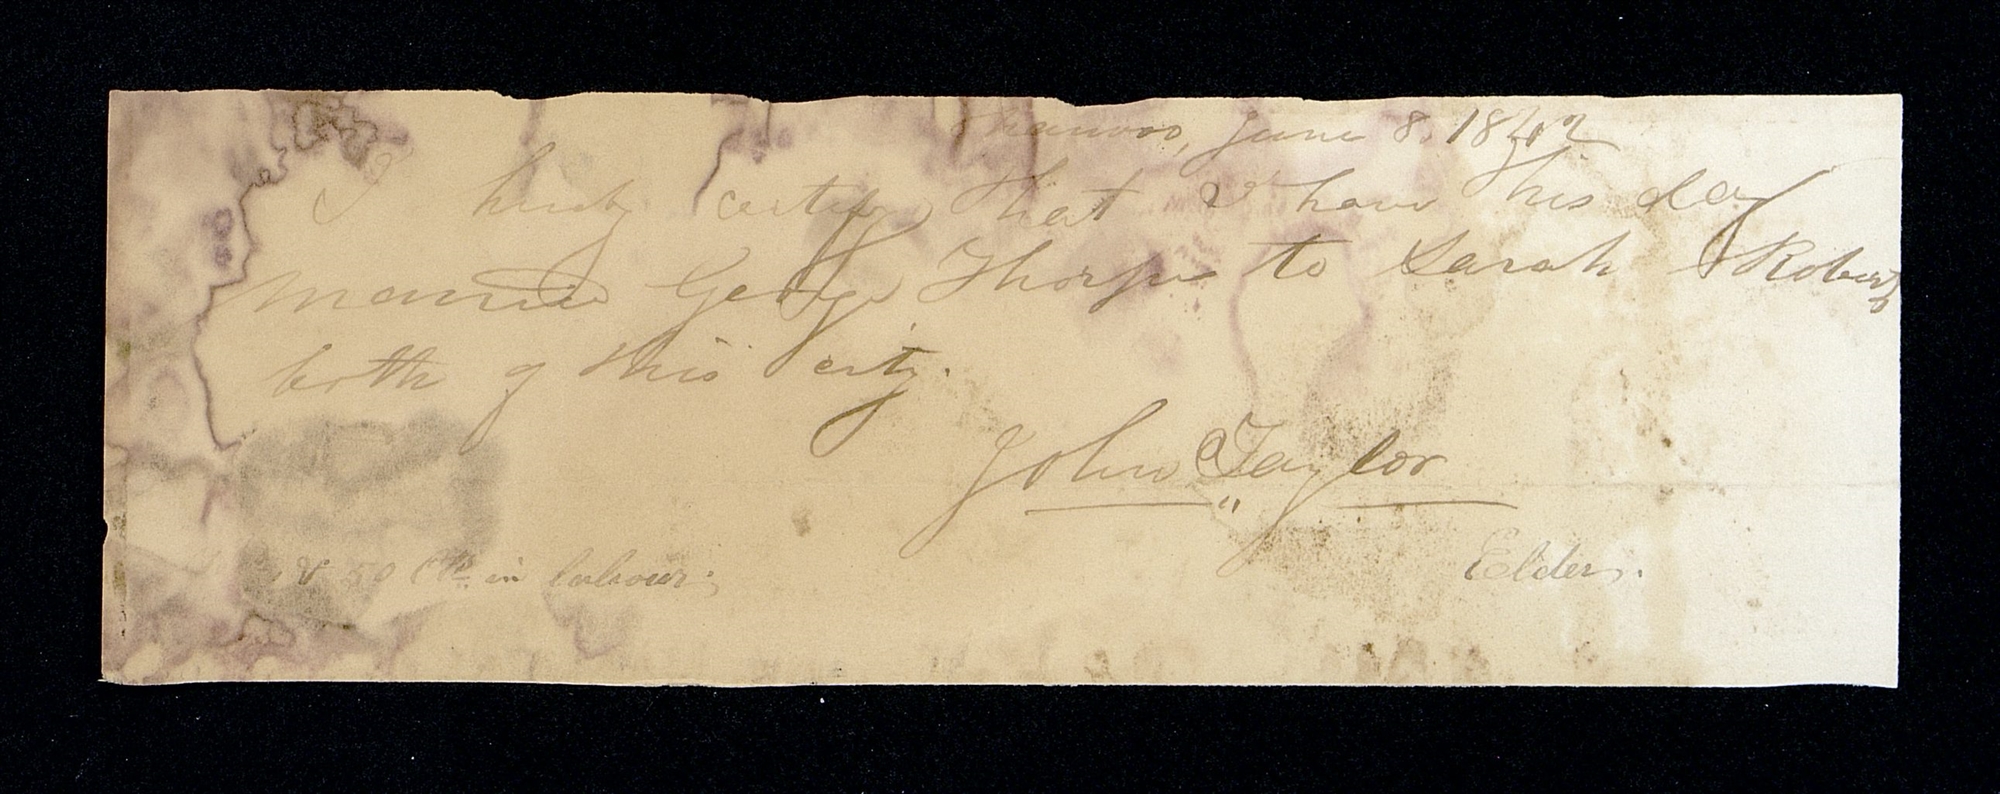 Nauvoo, June 8. 1842
I hereby certify, that I have this day
married George Thorpe to Sarah Roberts
both of this city.
John Taylor
Elder.
50 in labour.